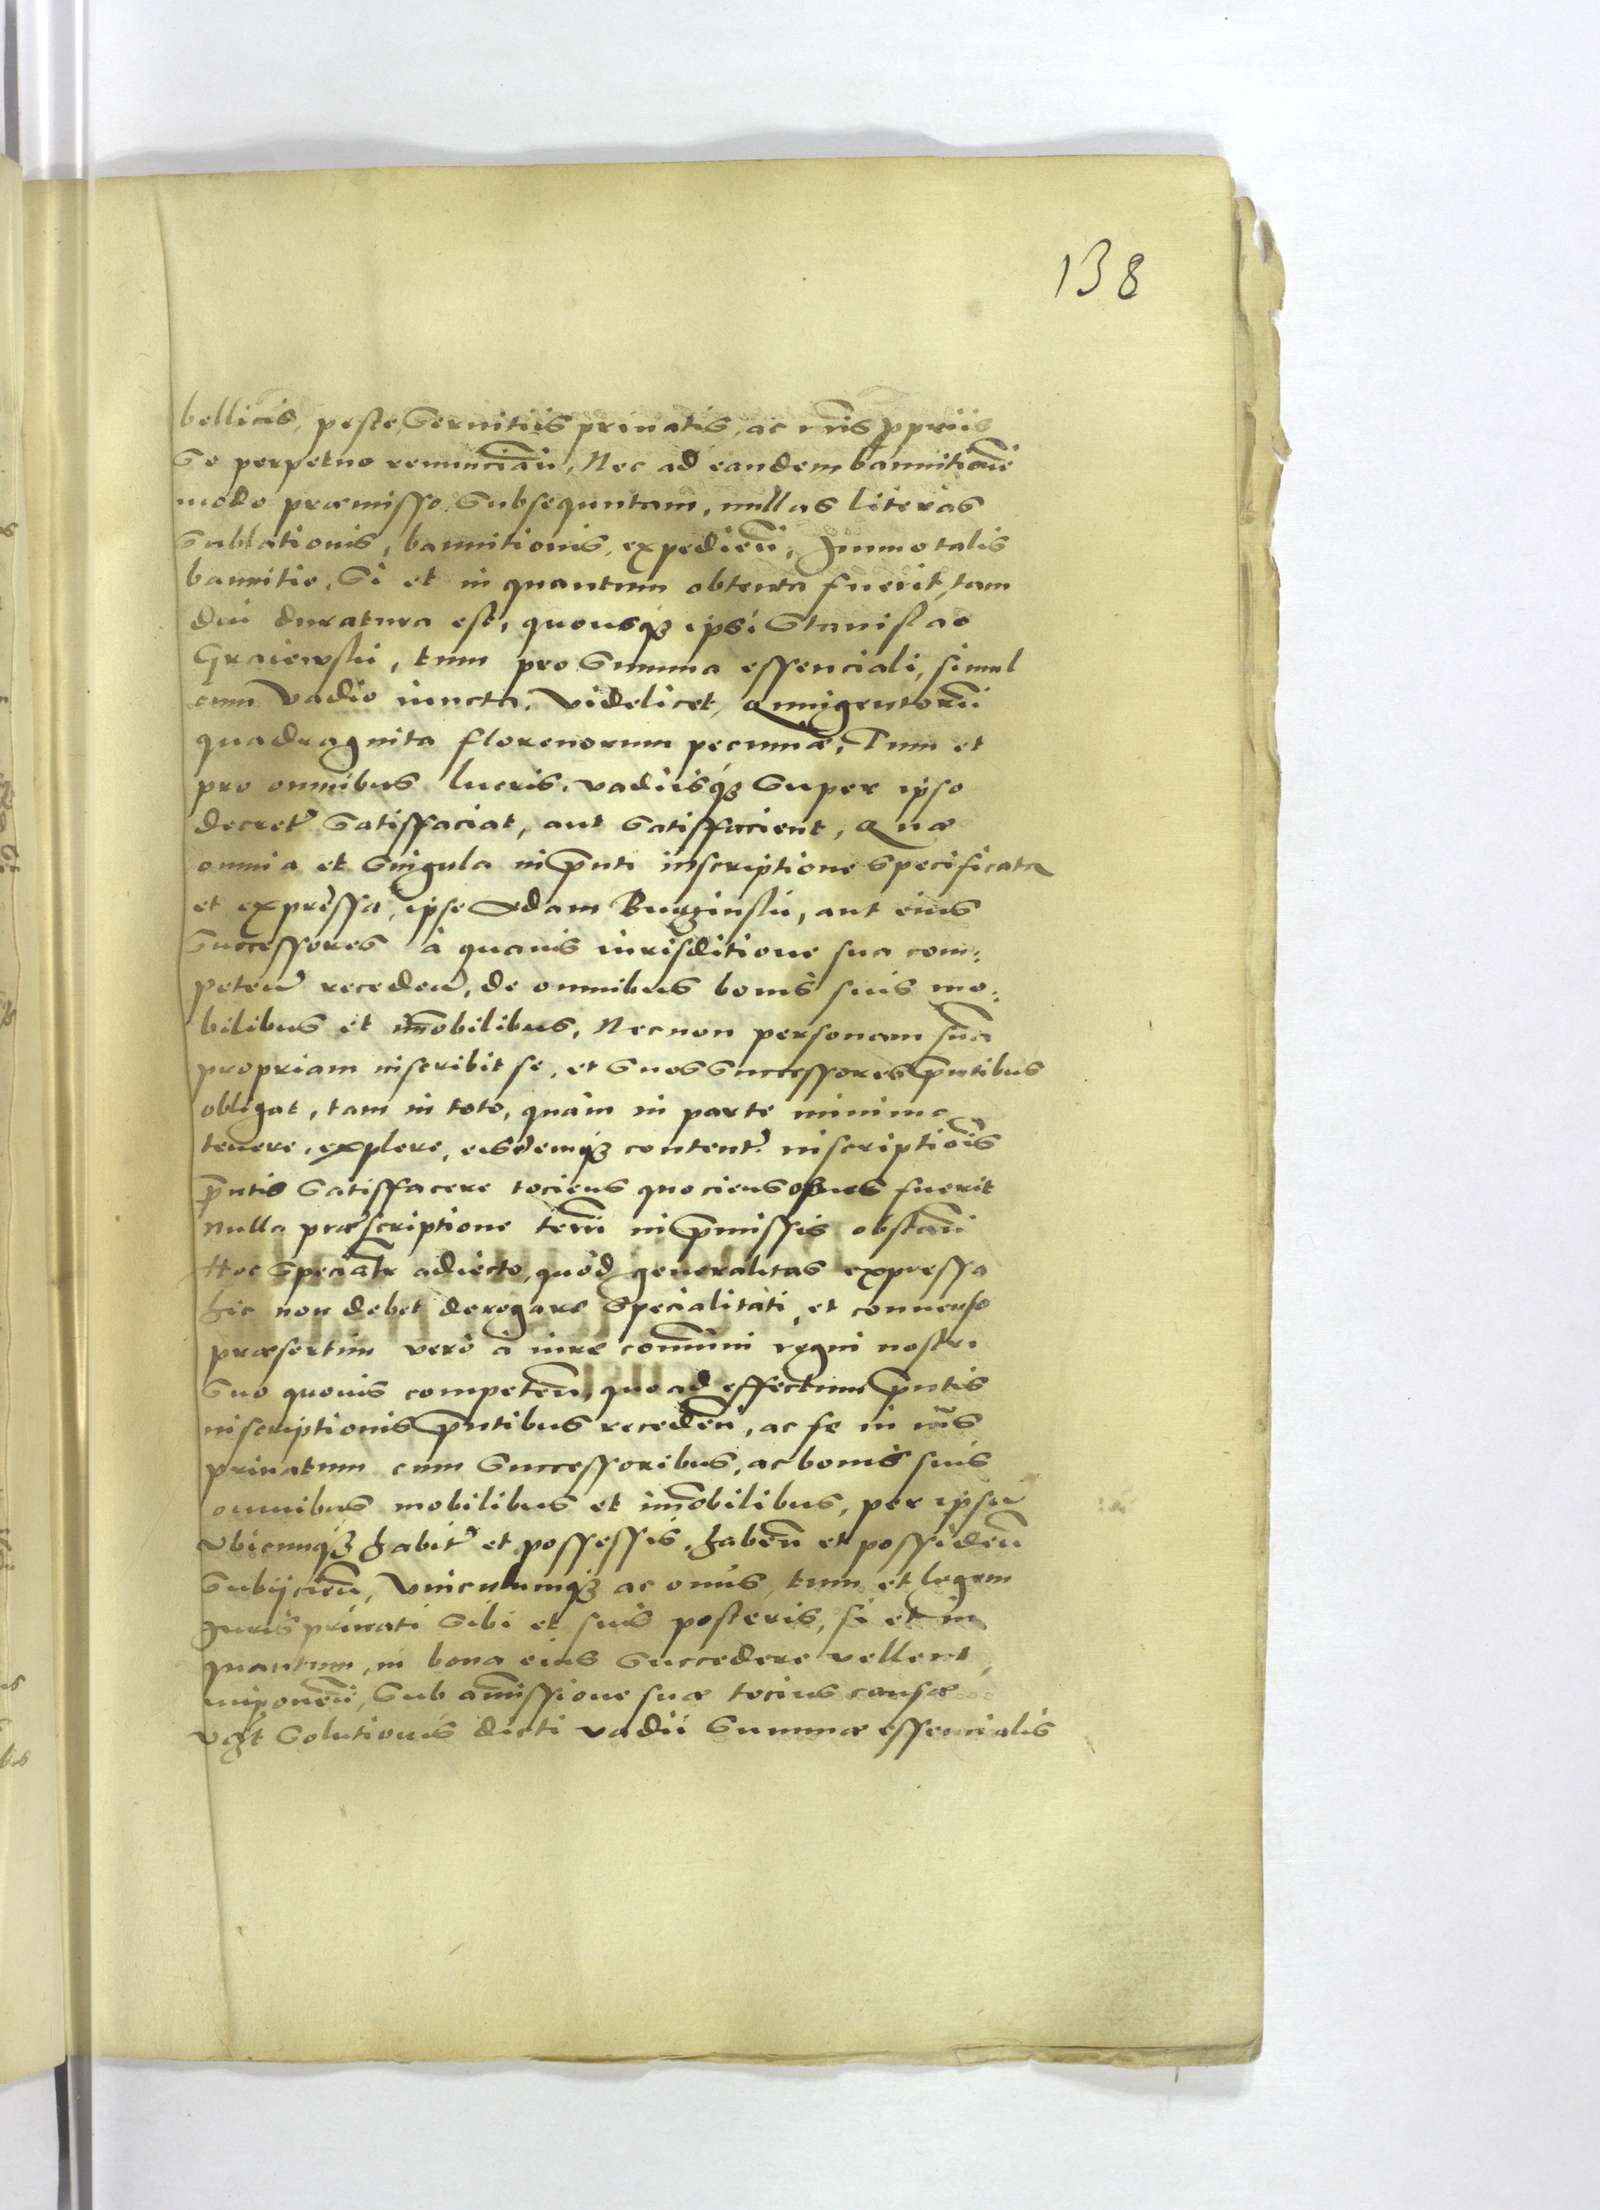 138
bellicis, peste, servitiis privatis, ac nris ppriis
se perpetuo renuncian̄. Nec ad eandem bannitionē
modo præmisso subsequutam, nullas literas
sublationis, bannitionis, expedien̄, Immo talis
bannitio, si et in quantum obtenta fuerit, tam
diu duratura est, quousq₃ ipsi Stanislao
Graiewski, tum pro summa essenciali, simul
cum vadio iuncta, videlicet, Quingentorū
quadraginta florenorum pecuniæ, Tum et
pro omnibus lucris, vadiisq́₃ super ipso
decret̉ satisfaciat, aut satisfacient, Quæ
omnia et singula in p̄nti inscriptione specificata
et expressa, ipse Adam Burzinski, aut eius
successores à quavis iurisditione sua com:
peten̄ receden̄, de omnibus bonis suis mo:
bilibus et īmobilibus, Necnon personam suā
propriam inscribit se, et suos successores p̄ntibus
obligat, tam in toto, quàm in parte minima
tenere, explere, eisdemq₃ content̉ inscriptiōis
p̄ntis satisfacere tociens quociens opus fuerit
Nulla præscriptione terrū in p̄missis obstan̄
Hoc specialr̄ adiecto, quòd generalitas expressa
hic non debet derogare specialitati, et converso
præsertim verò à iure com̄uni regni nostri
suo quovis competen̄, quo ad effectum p̄ntis
inscriptionis p̄ntibus receden̄, ac se in iūs
privatum cum successoribus, ac bonis suis
omnibus mobilibus et im̄obilibus, per ipsū
ubicunq₃ habit̉ et possessis, haben̄ et possiden̄
subijcien̄, vinculumq₃ ac onus, tum et legem
Iuris privati sibi et suis posteris, si et in
quantum, in bona eius succedere vellent,
imponen̄, sub am̄issione suæ tocius causæ
vĝt solutionis dicti vadii summæ essencialis